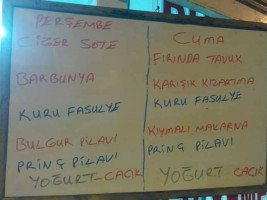 PERŞEMBE
CİĞER SOTE
BARBUNYA
KURU FASULYE
BULGUR PİLAVI
PRİNÇ PİLAVI
YOĞURT-CACIK
CUMA
FIRINDA TAVUK
KARIŞIK KIZARTMA
KURU FASULYE
KIYMALI MAKARNA
PRİNÇ PİLAVI
YOĞURT CACIK